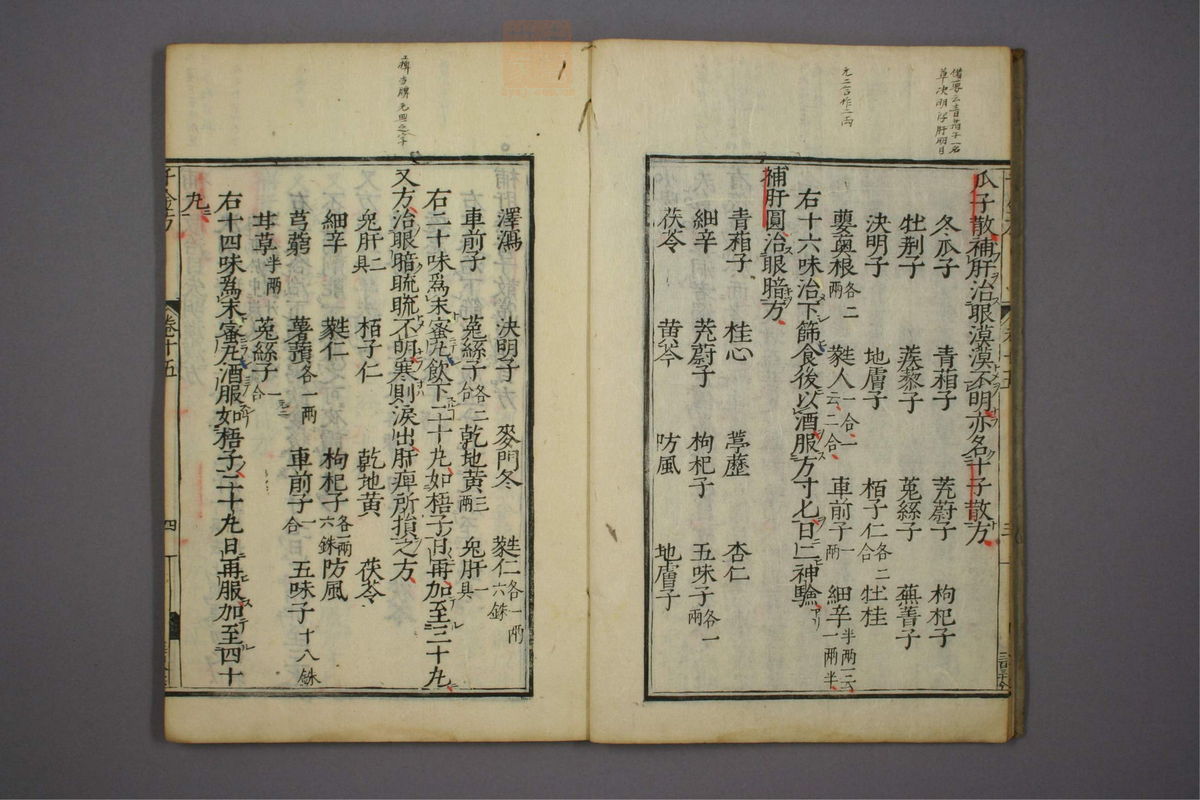 瓜子散補肝治眼漠漠不明亦名十子散方
冬瓜子 青葙子 茺蔚子 枸杞子
牡荆子 蒺藜子 菟絲子 蕪菁子
決明子 地膚子 栢子仁各二合 牡桂
蘡薁根各二兩 蕤人一合一云二合 車前子一兩 細辛半兩一云一兩半
右十六味治下篩食後以酒服方寸匕日二神驗
補肝圓治眼暗方
青葙子 桂心 葶藶 杏仁
細辛 茺蔚子 枸杞子 五味子各一兩
茯苓 黄芩 防風 地膚子
澤瀉 決明子 麥門冬 蕤仁各一兩六銖
車前子 菟絲子各二合 乾地黄三兩 兔肝一具
右二十味爲末蜜丸飲下二十丸如梧子日再加至三十丸
又方治眼暗䀮䀮不明寒則淚出肝痺所損之方
兔肝二具 栢子仁 乾地黄 茯苓
細辛 蕤仁 枸杞子各一兩六銖 防風
芎藭 薯蕷各一兩 車前子一合 五味子十八銖
甘草半兩 菟絲子一合
右十四味爲末蜜丸酒服如梧子二十丸日再服加至四十
丸
卷十五
四